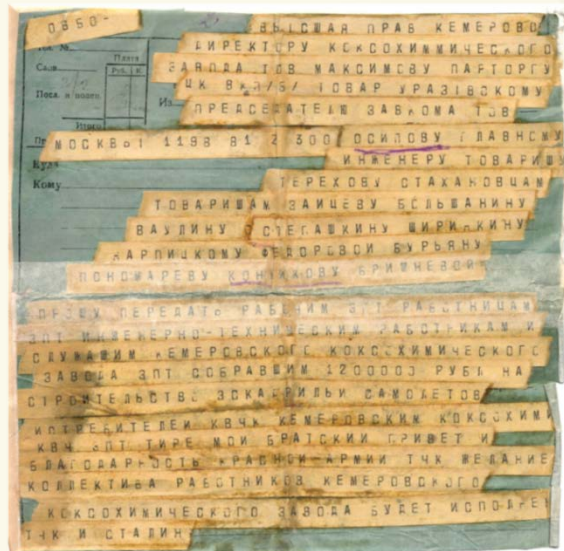 0850-
ВЫСШАЯ ПРАВ КЕМЕРОВО
ДИРЕКТОРУ КОКСОХИМИЧЕСКОГО
Плата
Руб. К.
ЗАВОДА ТОВ МАКСИМОВУ ПАРТОРГУ
ЦК ВКП/Б/ ТОВАР УРАЗОВСКОМУ
ПРЕДСЕДАТЕЛЮ ЗАВКОМА ТОВ
Итого
МОСКВЫ 1198 81 2 300 ОСИПОВУ ГЛАВНОМУ
Куда
ИНЖЕНЕРУ ТОВАРИЩУ
Кому
ТЕРЕХОВУ СТАХАНОВЦАМ
ТОВАРИЩАМ ЗАЙЦЕВУ БОЛЬШАНИНУ
ВАУЛИНУ СТЕПАШКИНУ ШИРИНКИНУ
КАРПИЦКОМУ ФЕДОРОВОЙ БУРЬЯНУ
ПОНОМАРЕВУ БРИШНЕВОЙ
ПРОШУ ПЕРЕДАТЬ РАБОЧИМ ЗПТ РАБОТНИЦАМ
ЗПТ ИНЖЕНЕРНО-ТЕХНИЧЕСКИМ РАБОТНИКАМ И
СЛУЖАЩИМ КЕМЕРОВСКОГО КОКСОХИМИЧЕСКОГО
ЗАВОДА ЗПТ СОБРАВШИМ 1200000 РУБЛ НА
СТРОИТЕЛЬСТВО ЭСКАДРИЛЬИ САМОЛЕТОВ
ИСТРЕБИТЕЛЕЙ КВЧК КЕМЕРОВСКИМ КОКСОХИМИ
КВЧ ЗПТ ТИРЕ МОЙ БРАТСКИЙ ПРИВЕТ И
БЛАГОДАРНОСТЬ КРАСНОЙ АРМИИ ТЧК ЖЕЛАНИЕ
КОЛЛЕКТИВА РАБОТНИКОВ КЕМЕРОВСКОГО
КОКСОХИМИЧЕСКОГО ЗАВОДА БУДЕТ ИСПОЛНЕ
ТЧК И СТАЛИН